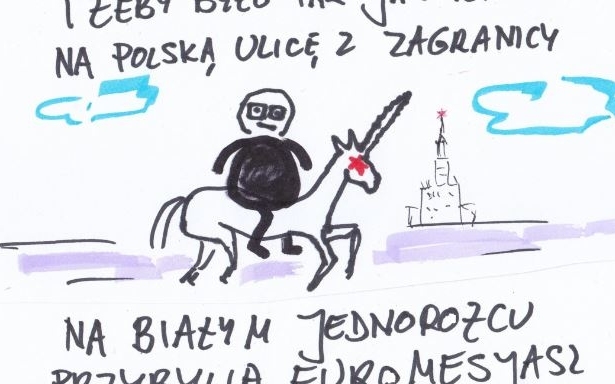 I ŻEBY BYŁO TAK
NA POLSKĄ ULICĘ Z ZAGRANICY
NA BIAŁYM JEDNOROŻCU
EUROMESYASZ